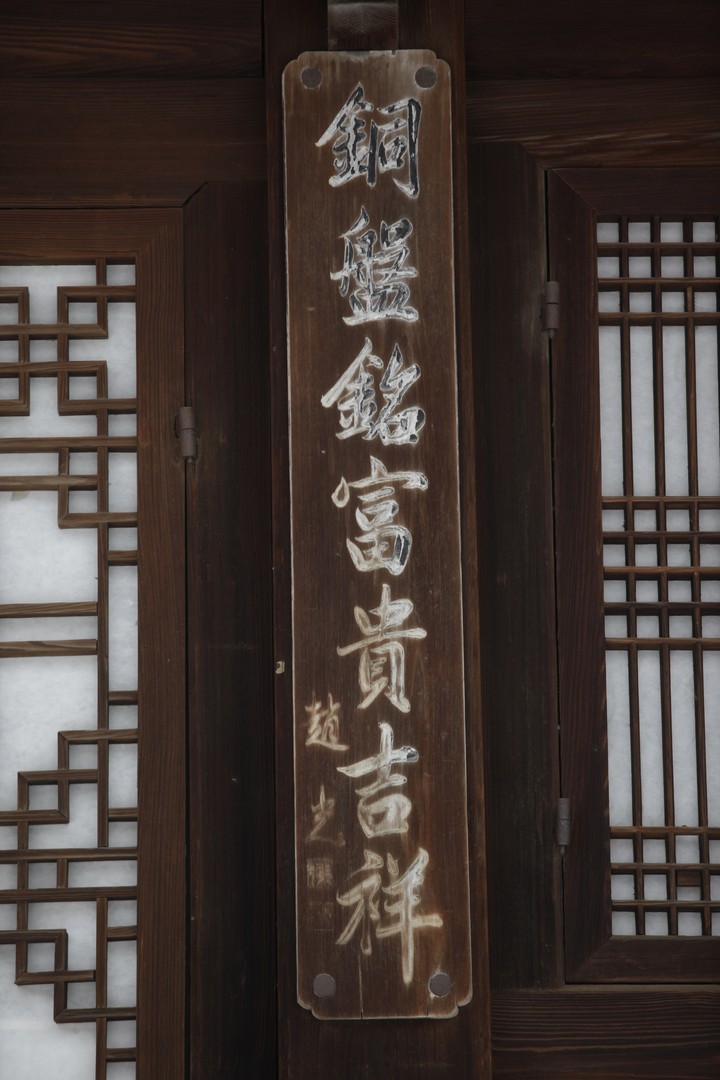 銅盤銘富貴吉祥
趙光